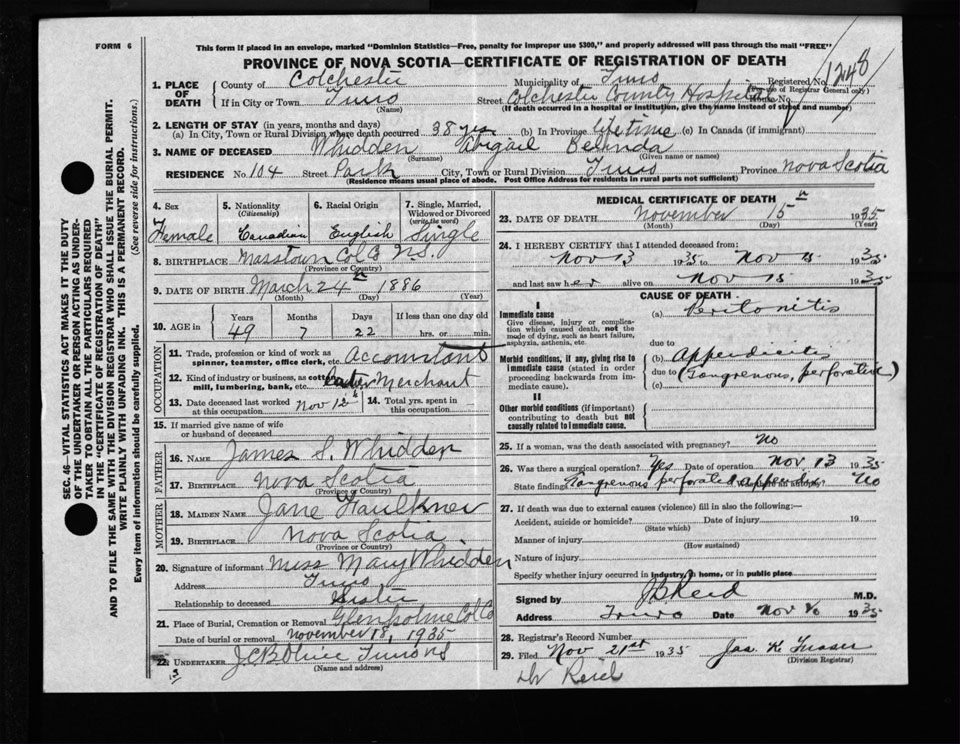 FORM 6
This form if placed in an envelope, marked "Dominion Statistics—Free, penalty for improper use $300," and properly addressed will pass through the mail "FREE"
PROVINCE OF NOVA SCOTIA—CERTIFICATE OF REGISTRATION OF DEATH
1. PLACE OF DEATH
County of Colchester Municipality of Truro Registered No. 1248
(Use of Registrar General only)
If in City or Town Truro Street Colchester County Hospital
(Name) (If death occurred in a hospital or institution, give the name instead of street and number)
2. LENGTH OF STAY (in years, months and days)
(a) In City, Town or Rural Division where death occurred 38 yrs (b) In Province lifetime (c) In Canada (if immigrant)
3. NAME OF DECEASED Whidden Abigail Belinda
(Surname) (Given name or names)
RESIDENCE No. 104 Street Park City, Town or Rural Division Truro Province Nova Scotia
(Residence means usual place of abode. Post Office Address for residents in rural parts not sufficient)
SEC. 46—VITAL STATISTICS ACT MAKES IT THE DUTY
OF THE UNDERTAKER OR PERSON ACTING AS UNDER-
TAKER TO OBTAIN ALL THE PARTICULARS REQUIRED
IN THE "CERTIFICATE OF REGISTRATION OF DEATH"
AND TO FILE THE SAME WITH THE DIVISION REGISTRAR WHO SHALL ISSUE THE BURIAL PERMIT.
WRITE PLAINLY WITH UNFADING INK. THIS IS A PERMANENT RECORD.
Every item of information should be carefully supplied. (See reverse side for instructions.)
4. Sex
Female
5. Nationality
(Citizenship)
Canadian
6. Racial Origin
English
7. Single, Married,
Widowed or Divorced
(write the word)
Single
8. BIRTHPLACE Masstown Col. Co N.S.
(Province or Country)
9. DATE OF BIRTH March 24th 1886
(Month) (Day) (Year)
10. AGE in
Years Months Days If less than one day old
49 7 22 hrs. or min.
OCCUPATION
11. Trade, profession or kind of work as
spinner, teamster, office clerk, etc. Accountant
12. Kind of industry or business, as cotton
mill, lumbering, bank, etc. Merchant
13. Date deceased last worked
at this occupation Nov 12th
14. Total yrs. spent in
this occupation
15. If married give name of wife
or husband of deceased
FATHER
16. NAME James S. Whidden
17. BIRTHPLACE Nova Scotia
(Province or Country)
MOTHER
18. MAIDEN NAME Jane Faulkner
19. BIRTHPLACE Nova Scotia
(Province or Country)
20. Signature of informant Miss Mary Whidden
Address Truro
Relationship to deceased Sister
21. Place of Burial, Cremation or Removal Glenholme Col Co
Date of burial or removal November 18, 1935
22. UNDERTAKER Truro NS
(Name and address)
MEDICAL CERTIFICATE OF DEATH
23. DATE OF DEATH November 15th 1935
(Month) (Day) (Year)
24. I HEREBY CERTIFY that I attended deceased from:
Nov 13 1935 to Nov 15 1935
and last saw her alive on Nov 15 1935
CAUSE OF DEATH
I
Immediate cause
Give disease, injury or complica-
tion which caused death, not the
mode of dying, such as heart failure,
asphyxia, asthenia, etc.
(a) Peritonitis
due to
Morbid conditions, if any, giving rise to
immediate cause (stated in order
proceeding backwards from im-
mediate cause).
(b) Appendicitis
due to (Gangrenous, perforated)
(c)
II
Other morbid conditions (if important)
contributing to death but not
causally related to immediate cause.
25. If a woman, was the death associated with pregnancy? No
26. Was there a surgical operation? Yes Date of operation Nov 13 1935
State findings Gangrenous perforated Appendix No
27. If death was due to external causes (violence) fill in also the following:—
Accident, suicide or homicide? Date of injury 19
(State which)
Manner of injury
(How sustained)
Nature of injury
Specify whether injury occurred in industry, in home, or in public place
Signed by Reid M.D.
Address Truro Date Nov 1935
28. Registrar's Record Number
29. Filed Nov 21st 1935 Jas. K. Fraser
(Division Registrar)
Dr Reid